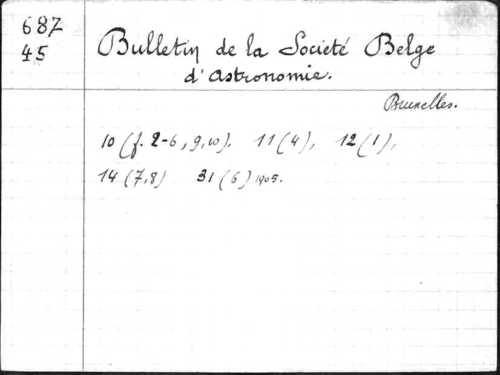 687
45
Bulletin de la Société Belge
d'Astronomie.
Bruxelles.
10 (f. 2-6, 9, 10). 11 (4), 12 (1),
14 (7,8) 31 (6) 1905.